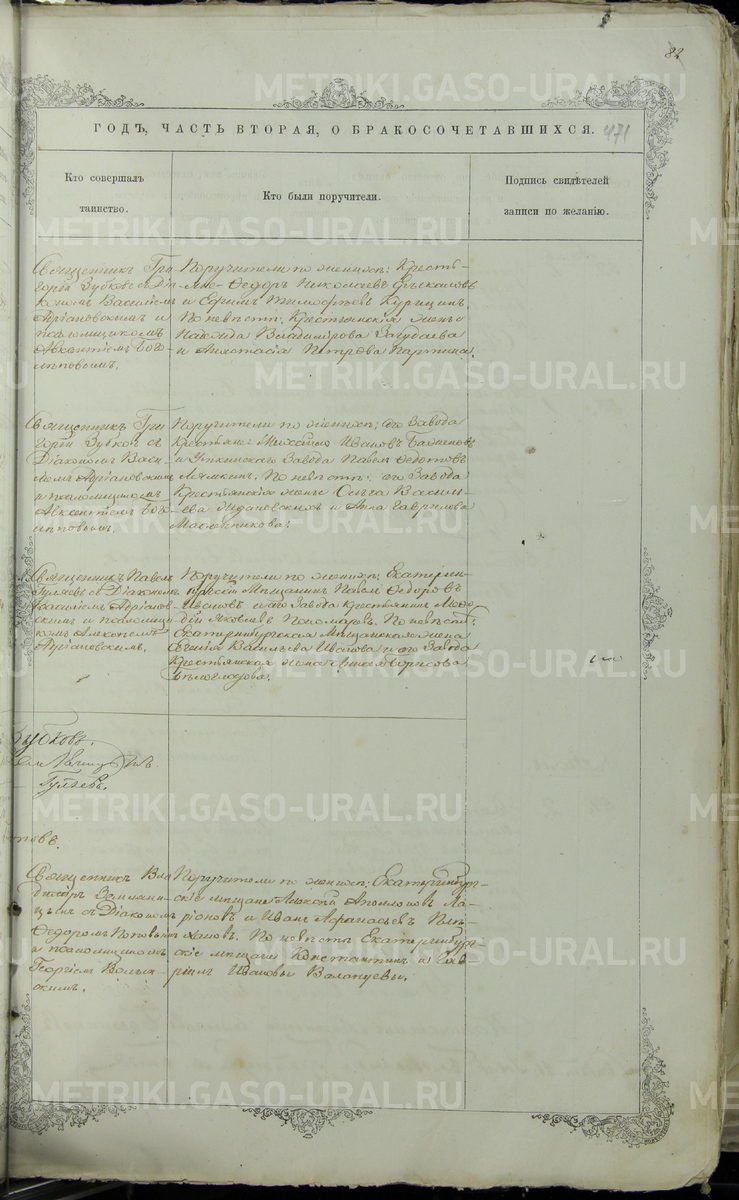 82
ГОДЪ, ЧАСТЬ ВТОРАЯ, О БРАКОСОЧЕТАВШИХСЯ.
471
Кто совершалъ
таинство.
Кто были поручители.
Подпись свидѣтелей
записи по желанію.
Священникъ Гри-
горій Зубковъ съ Діа-
кономъ Василіемъ
Аріановскимъ и
псаломщикомъ
Авксентіемъ Бого-
лѣповымъ.
Поручители по женихѣ: Кресть-
яне Ѳедоръ Николаевъ
и Ефимъ Тимофѣевъ Курицинъ.
По невѣстѣ: Крестьянскія жены
Надежда Владимірова
и Анастасія Петрова
Священникъ Гри-
горій Зубковъ съ
Діакономъ Васи-
ліемъ Аріановскимъ
и псаломщикомъ
Авксентіемъ Бого-
лѣповымъ.
Поручители по женихѣ: сего Завода
Крестьяне Михаилъ Ивановъ Баженовъ
и Уткинскаго Завода Павелъ Ѳедотовъ
По невѣстѣ: сего Завода
Крестьянскія жены Ольга Васильи-
ева и Анна Гаврилова
Масленникова.
Священникъ Павелъ
Гуляевъ съ Діакономъ
Василіемъ Аріанов-
скимъ и псаломщи-
комъ Алексѣемъ
Аріановскимъ.
Поручители по женихѣ: Екатерин-
бургскій Мѣщанинъ Павелъ Ѳедоровъ
Ивановъ и сего Завода крестьянинъ
Яковлевъ Пономаревъ. По невѣстѣ:
Екатеринбургская Мѣщанская жена
Евгенія Васильева Иванова и сего Завода
Крестьянская жена Борисова
Бѣлоглазова.
Зубковъ.
Гуляевъ.
Священникъ Вла-
диміръ Земляни-
цынъ съ Діакономъ
Ѳедоромъ Поповымъ
и псаломщикомъ
Георгіемъ Волын-
скимъ.
Поручители по женихѣ: Екатеринбург-
скіе мѣщане Алексѣй Аполлоновъ Ла-
ріоновъ и Иванъ Афанасьевъ Пле-
хановъ. По невѣстѣ Екатеринбург-
скіе мѣщане Константинъ и Гав-
ріилъ Ивановы Валануевы.
METRIKI.GASO-URAL.RU